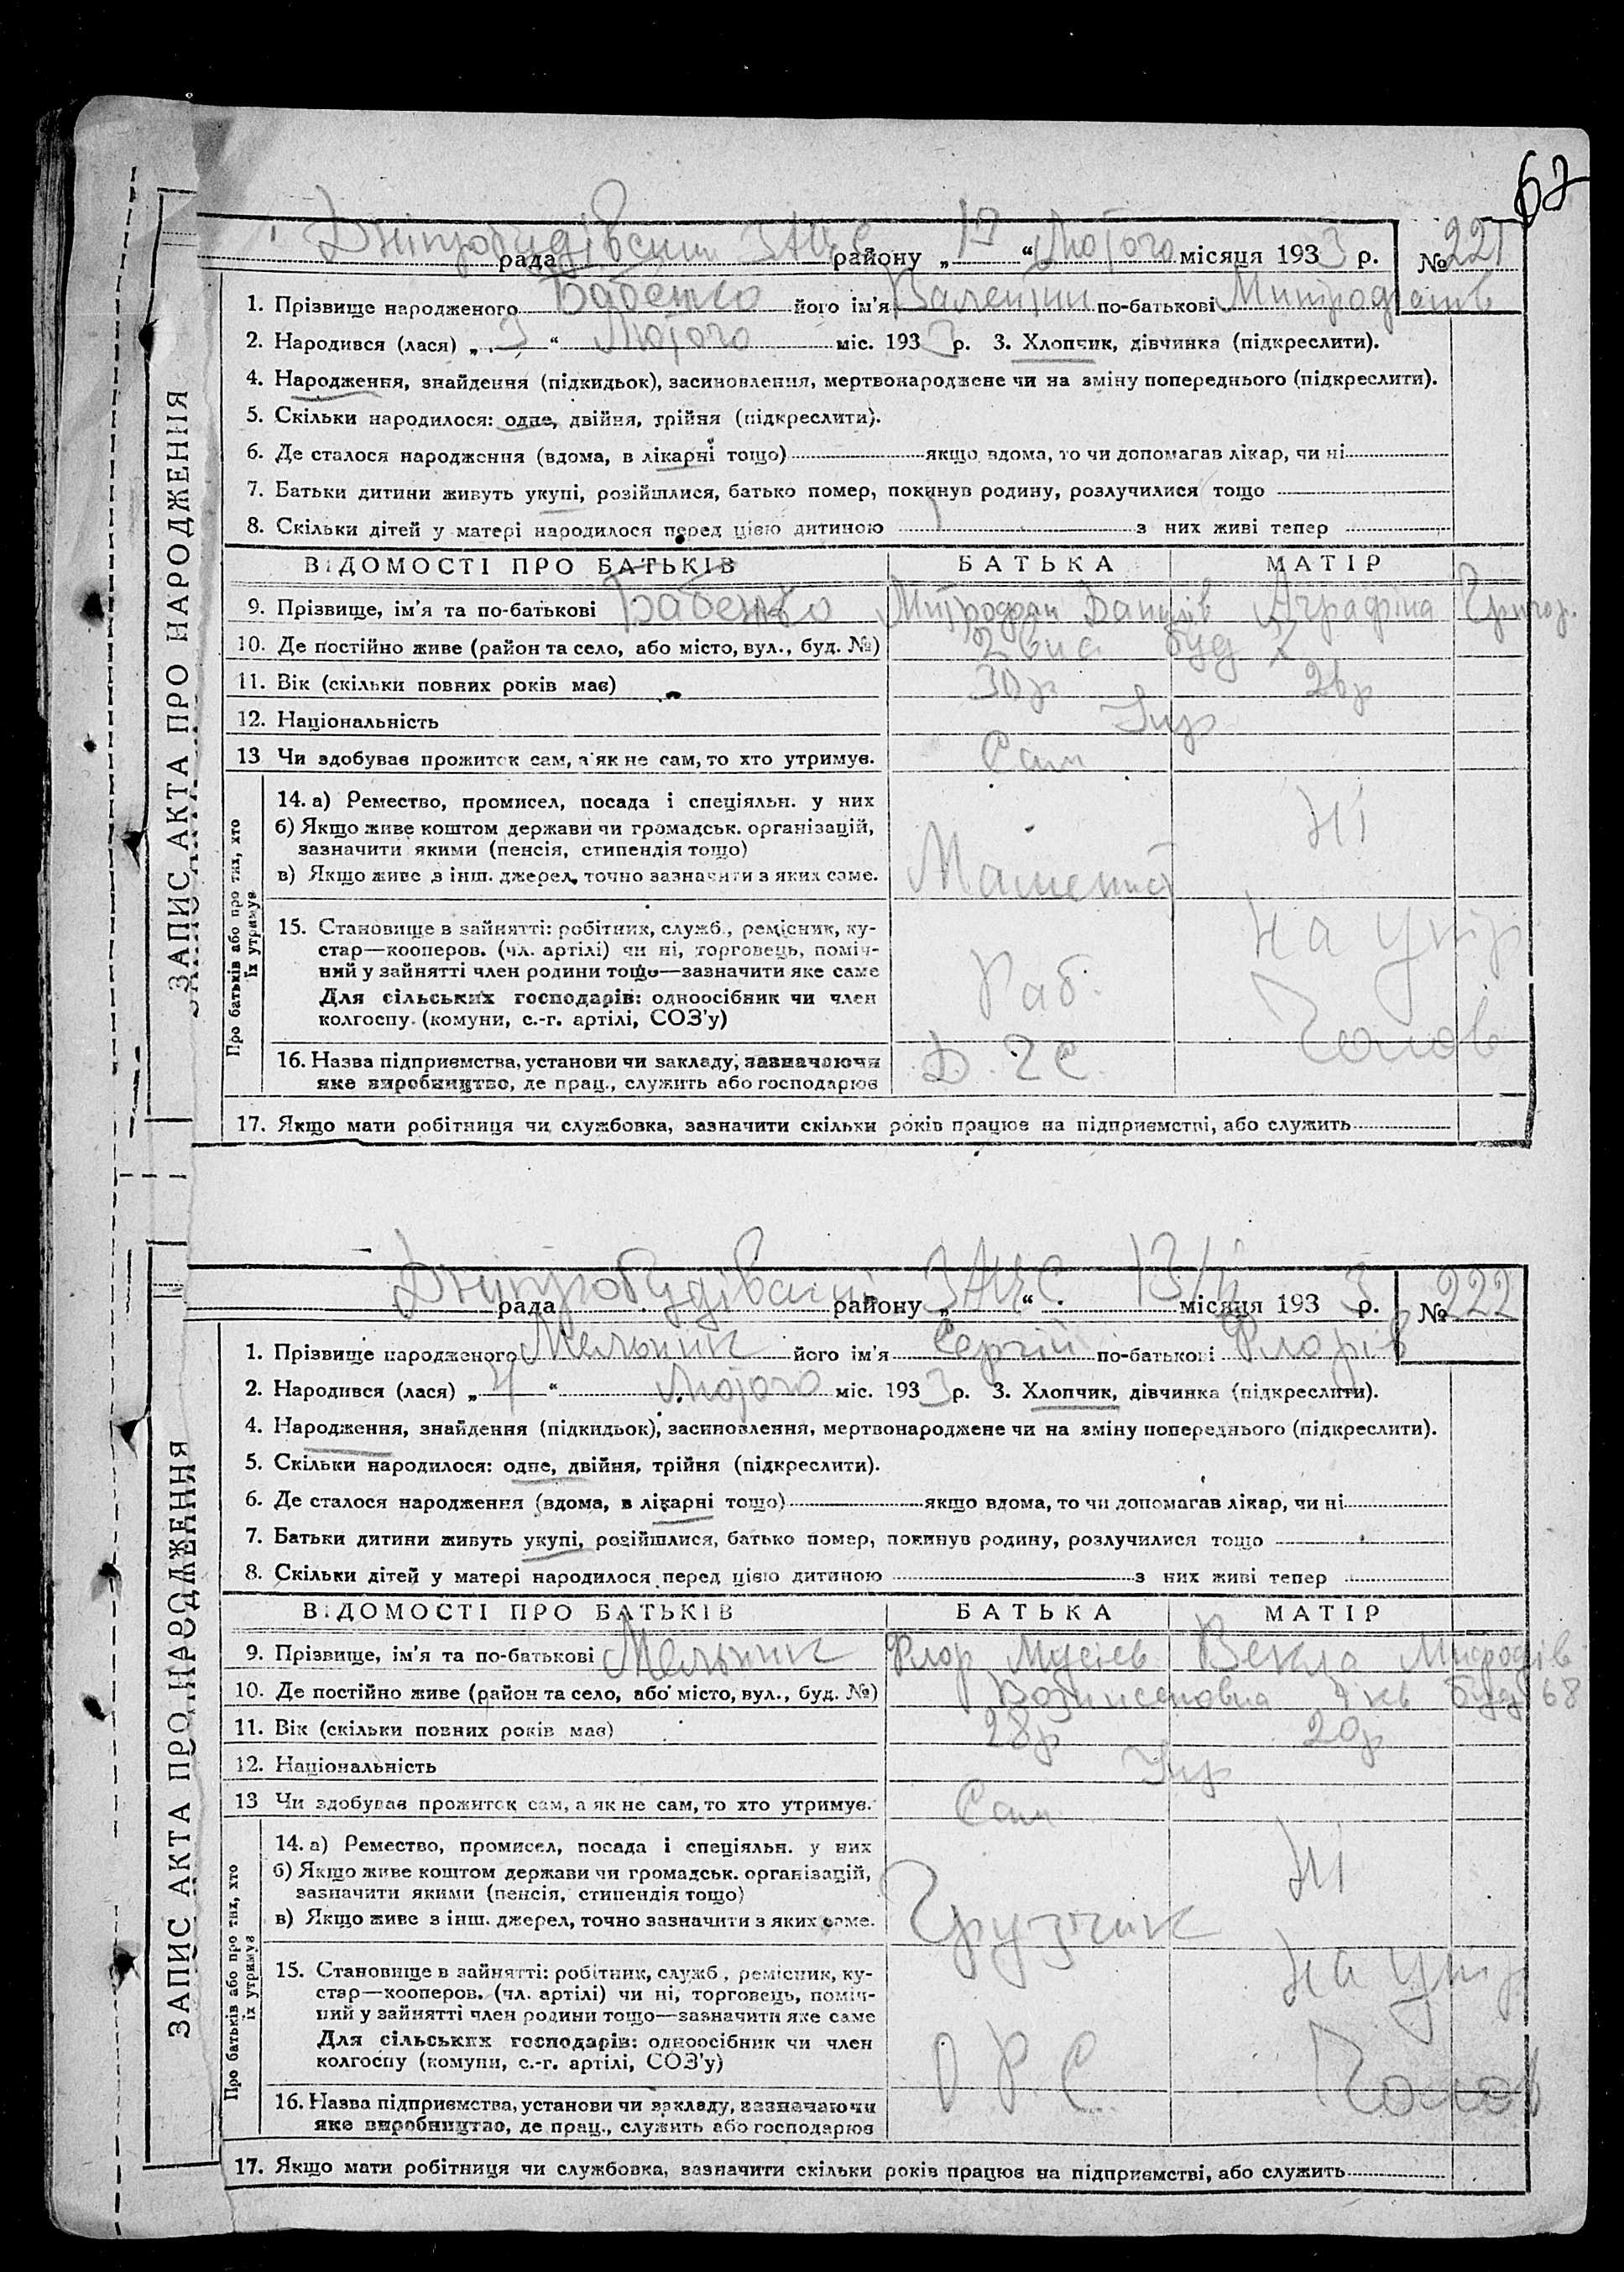 67
ЗАПИС АКТА ПРО НАРОДЖЕННЯ
рада ЗАГС району „ “ Лютого місяця 1933 р. № 221
1. Прізвище народженого Бабенко його ім'я Валентин по-батькові
2. Народився (лася) „ 3 “ Лютого міс. 1933 р. 3. Хлопчик, дівчинка (підкреслити).
4. Народження, знайдення (підкидьок), засиновлення, мертвонароджене чи на зміну попереднього (підкреслити).
5. Скільки народилося: одне, двійня, трійня (підкреслити).
6. Де сталося народження (вдома, в лікарні тощо) якщо вдома, то чи допомагав лікар, чи ні
7. Батьки дитини живуть укупі, розійшлися, батько помер, покинув родину, розлучилися тощо
8. Скільки дітей у матері народилося перед цією дитиною з них живі тепер
ВІДОМОСТІ ПРО БАТЬКІВ БАТЬКА МАТІР
9. Прізвище, ім'я та по-батькові Бабенко Митрофан Данилів Аграфіна Григор.
10. Де постійно живе (район та село, або місто, вул., буд. №) буд
11. Вік (скільки повних років має) 30 р 26 р
12. Національність Укр
13 Чи здобуває прожиток сам, а як не сам, то хто утримує. Сам
Про батьків або про тих, хто їх утримує
14. а) Ремество, промисел, посада і спеціяльн. у них
б) Якщо живе коштом держави чи громадськ. організацій,
зазначити якими (пенсія, стипендія тощо) Ні
в) Якщо живе з інш. джерел, точно зазначити з яких саме. Машеніст
15. Становище в зайнятті: робітник, служб., ремісник, ку-
стар—кооперов. (чл. артілі) чи ні, торговець, поміч- на утр
ний у зайнятті член родини тощо—зазначити яке саме
Для сільських господарів: одноосібник чи член Раб.
колгоспу (комуни, с.-г. артілі, СОЗ'у) Чолов
16. Назва підприємства, установи чи закладу, зазначаючи Д. Г С.
яке виробництво, де прац., служить або господарює
17. Якщо мати робітниця чи службовка, зазначити скільки років працює на підприємстві, або служить
ЗАПИС АКТА ПРО НАРОДЖЕННЯ
рада району „ ЗАГС “ 13/II місяця 1933 р. № 222
1. Прізвище народженого Мельник його ім'я Сергій по-батькові Флорів
2. Народився (лася) „ 4 “ Лютого міс. 1933 р. 3. Хлопчик, дівчинка (підкреслити).
4. Народження, знайдення (підкидьок), засиновлення, мертвонароджене чи на зміну попереднього (підкреслити).
5. Скільки народилося: одне, двійня, трійня (підкреслити).
6. Де сталося народження (вдома, в лікарні тощо) якщо вдома, то чи допомагав лікар, чи ні
7. Батьки дитини живуть укупі, розійшлися, батько помер, покинув родину, розлучилися тощо
8. Скільки дітей у матері народилося перед цією дитиною з них живі тепер
ВІДОМОСТІ ПРО БАТЬКІВ БАТЬКА МАТІР
9. Прізвище, ім'я та по-батькові Мельник Флор Мусієв Векла
10. Де постійно живе (район та село, або місто, вул., буд. №) кв буд 68
11. Вік (скільки повних років має) 28 р 20 р
12. Національність Укр
13 Чи здобуває прожиток сам, а як не сам, то хто утримує. Сам
Про батьків або про тих, хто їх утримує
14. а) Ремество, промисел, посада і спеціяльн. у них
б) Якщо живе коштом держави чи громадськ. організацій,
зазначити якими (пенсія, стипендія тощо) Ні
в) Якщо живе з інш. джерел, точно зазначити з яких саме. Грузчик
15. Становище в зайнятті: робітник, служб., ремісник, ку-
стар—кооперов. (чл. артілі) чи ні, торговець, поміч- на утр
ний у зайнятті член родини тощо—зазначити яке саме
Для сільських господарів: одноосібник чи член
колгоспу (комуни, с.-г. артілі, СОЗ'у) О Р. С. Чолов
16. Назва підприємства, установи чи закладу, зазначаючи
яке виробництво, де прац., служить або господарює
17. Якщо мати робітниця чи службовка, зазначити скільки років працює на підприємстві, або служить